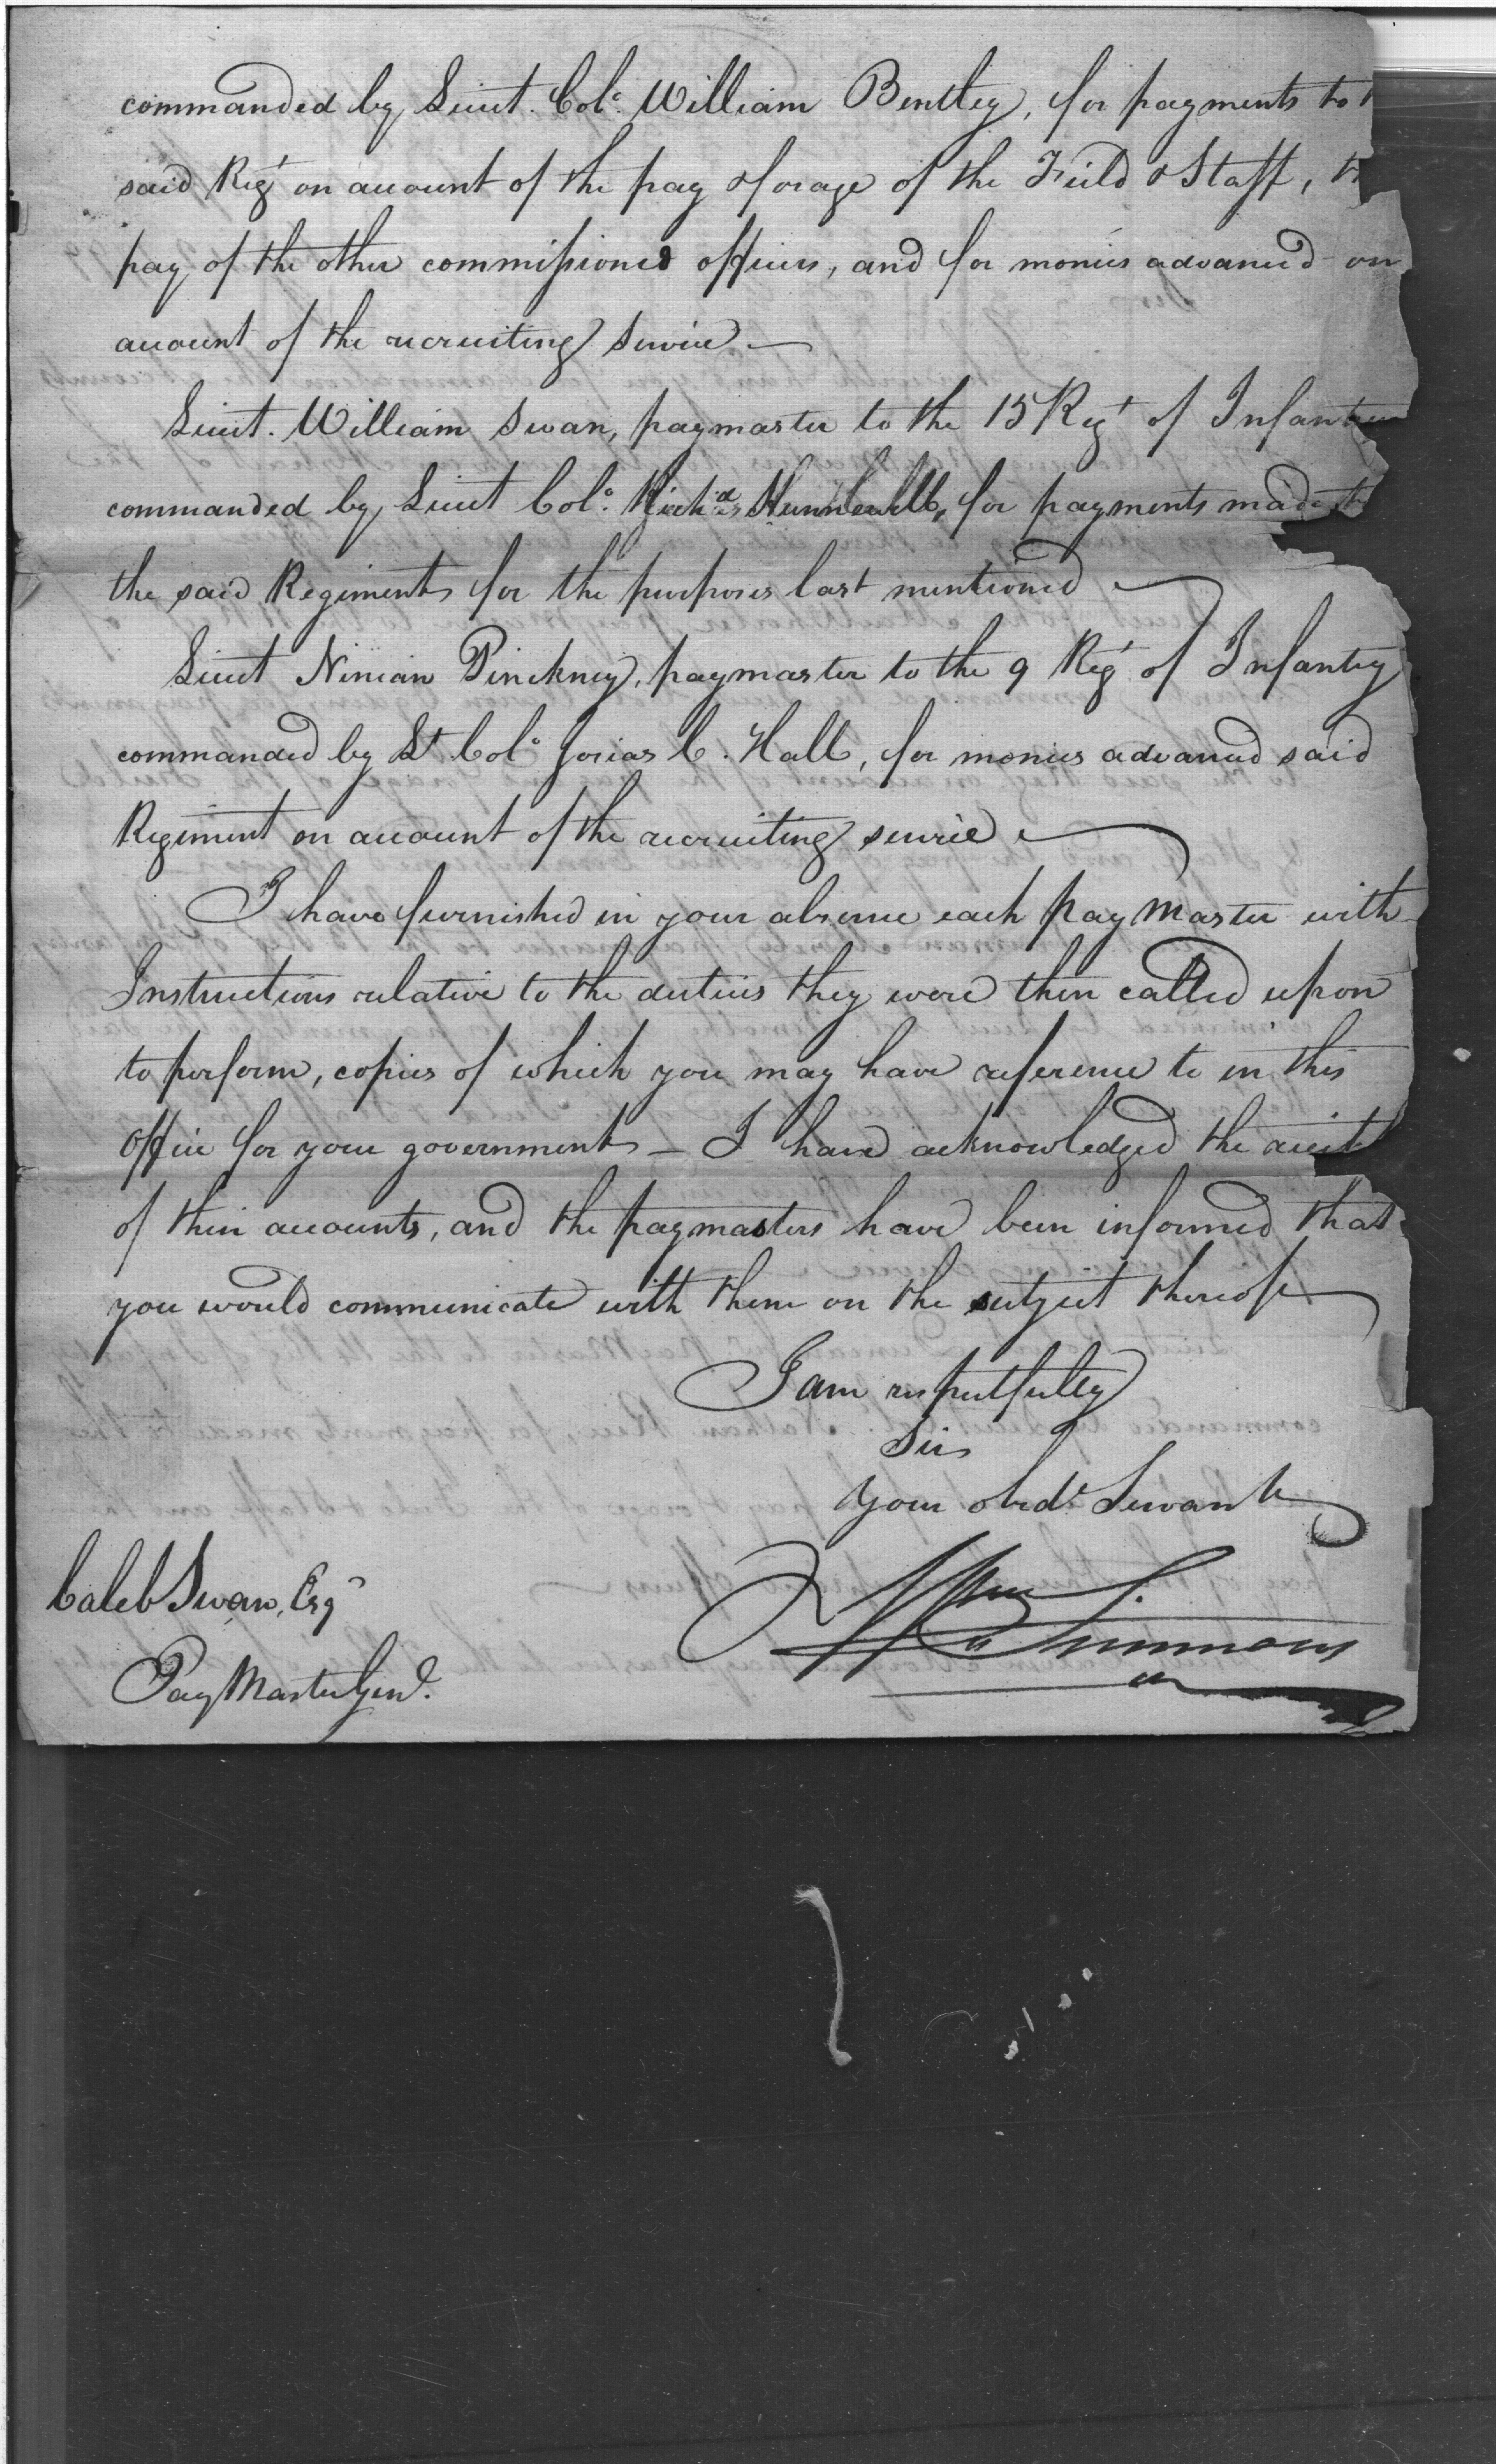 commanded by Lieut. Colo. William Bentley, for payments to
said Regt on account of the pay & forage of the Field & Staff,
pay of the other commissioned officers, and for monies advanced on
account of the recruiting service —
Lieut. William Swan, paymaster to the 15 Regt of Infantry
commanded by Lieut Colo. Richd Hunnewell, for payments made to
the said Regiment for the purposes last mentioned —
Lieut Ninian Pinckney, paymaster to the 9 Regt of Infantry
commanded by Lt Colo Josias C. Hall, for monies advanced said
Regiment on account of the recruiting service —
I have furnished in your absence each pay Master with
Instructions relative to the duties they were then called upon
to perform, copies of which you may have reference to in this
office for your government — I have acknowledged the receipt
of their accounts, and the paymasters have been informed that
you would communicate with them on the subject thereof
I am respectfully
Sir
Your obedt Servant
Wm Simmons
Caleb Swan, Esqr
Pay Master Genl.